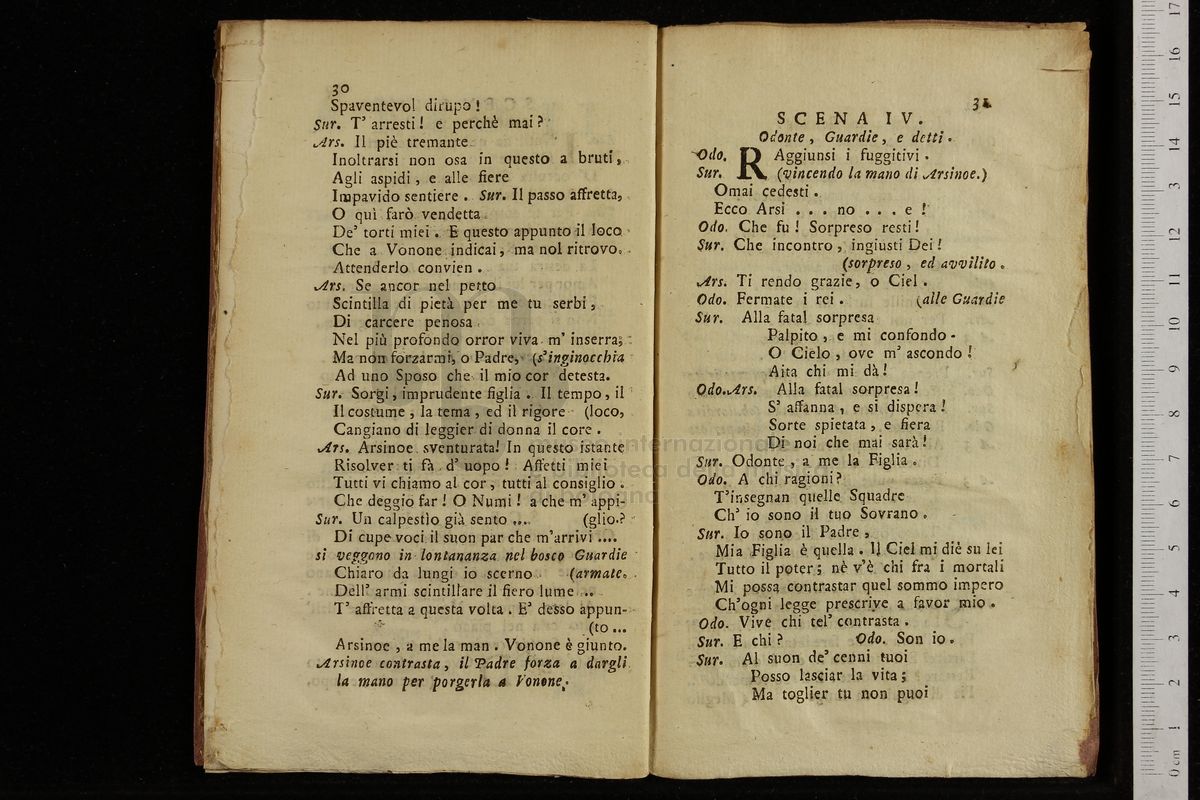 30
Spaventevol dirupo!
Sur. T' arresti! e perchè mai?
Ars. Il piè tremante
Inoltrarsi non osa in questo a bruti,
Agli aspidi, e alle fiere
Impavido sentiere. Sur. Il passo affretta,
O quì farò vendetta
De' torti miei. E questo appunto il loco
Che a Vonone indicai, ma nol ritrovo.
Attenderlo convien.
Ars. Se ancor nel petto
Scintilla di pietà per me tu serbi,
Di carcere penosa
Nel più profondo orror viva m' inserra;
Ma non forzarmi, o Padre, (s'inginocchia
Ad uno Sposo che il mio cor detesta.
Sur. Sorgi, imprudente figlia. Il tempo, il
Il costume, la tema, ed il rigore (loco,
Cangiano di leggier di donna il core.
Ars. Arsinoe sventurata! In questo istante
Risolver ti fà d' uopo! Affetti miei
Tutti vi chiamo al cor, tutti al consiglio.
Che deggio far! O Numi! a che m' appi-
Sur. Un calpestìo già sento .... (glio.?
Di cupe voci il suon par che m'arrivi ....
si veggono in lontananza nel bosco Guardie
Chiaro da lungi io scerno (armate.
Dell' armi scintillare il fiero lume ...
T' affretta a questa volta. E' desso appun-
(to ...
Arsinoe, a me la man. Vonone è giunto.
Arsinoe contrasta, il Padre forza a dargli
la mano per porgerla a Vonone.
31
SCENA IV.
Odonte, Guardie, e detti.
Odo. RAggiunsi i fuggitivi.
Sur. (vincendo la mano di Arsinoe.)
Omai cedesti.
Ecco Arsi ... no ... e!
Odo. Che fu! Sorpreso resti!
Sur. Che incontro, ingiusti Dei!
(sorpreso, ed avvilito.
Ars. Ti rendo grazie, o Ciel.
Odo. Fermate i rei. (alle Guardie
Sur. Alla fatal sorpresa
Palpito, e mi confondo.
O Cielo, ove m' ascondo!
Aita chi mi dà!
Odo. Ars. Alla fatal sorpresa!
S' affanna, e si dispera!
Sorte spietata, e fiera
Di noi che mai sarà!
Sur. Odonte, a me la Figlia.
Odo. A chi ragioni?
T'insegnan quelle Squadre
Ch' io sono il tuo Sovrano.
Sur. Io sono il Padre,
Mia Figlia è quella. Il Ciel mi diè su lei
Tutto il poter; nè v'è chi fra i mortali
Mi possa contrastar quel sommo impero
Ch'ogni legge prescrive a favor mio.
Odo. Vive chi tel' contrasta.
Sur. E chi? Odo. Son io.
Sur. Al suon de' cenni tuoi
Posso lasciar la vita;
Ma toglier tu non puoi
museo internazionale
e biblioteca della musica
di bologna
0 cm 1 2 3 4 5 6 7 8 9 10 11 12 13 14 15 16 17